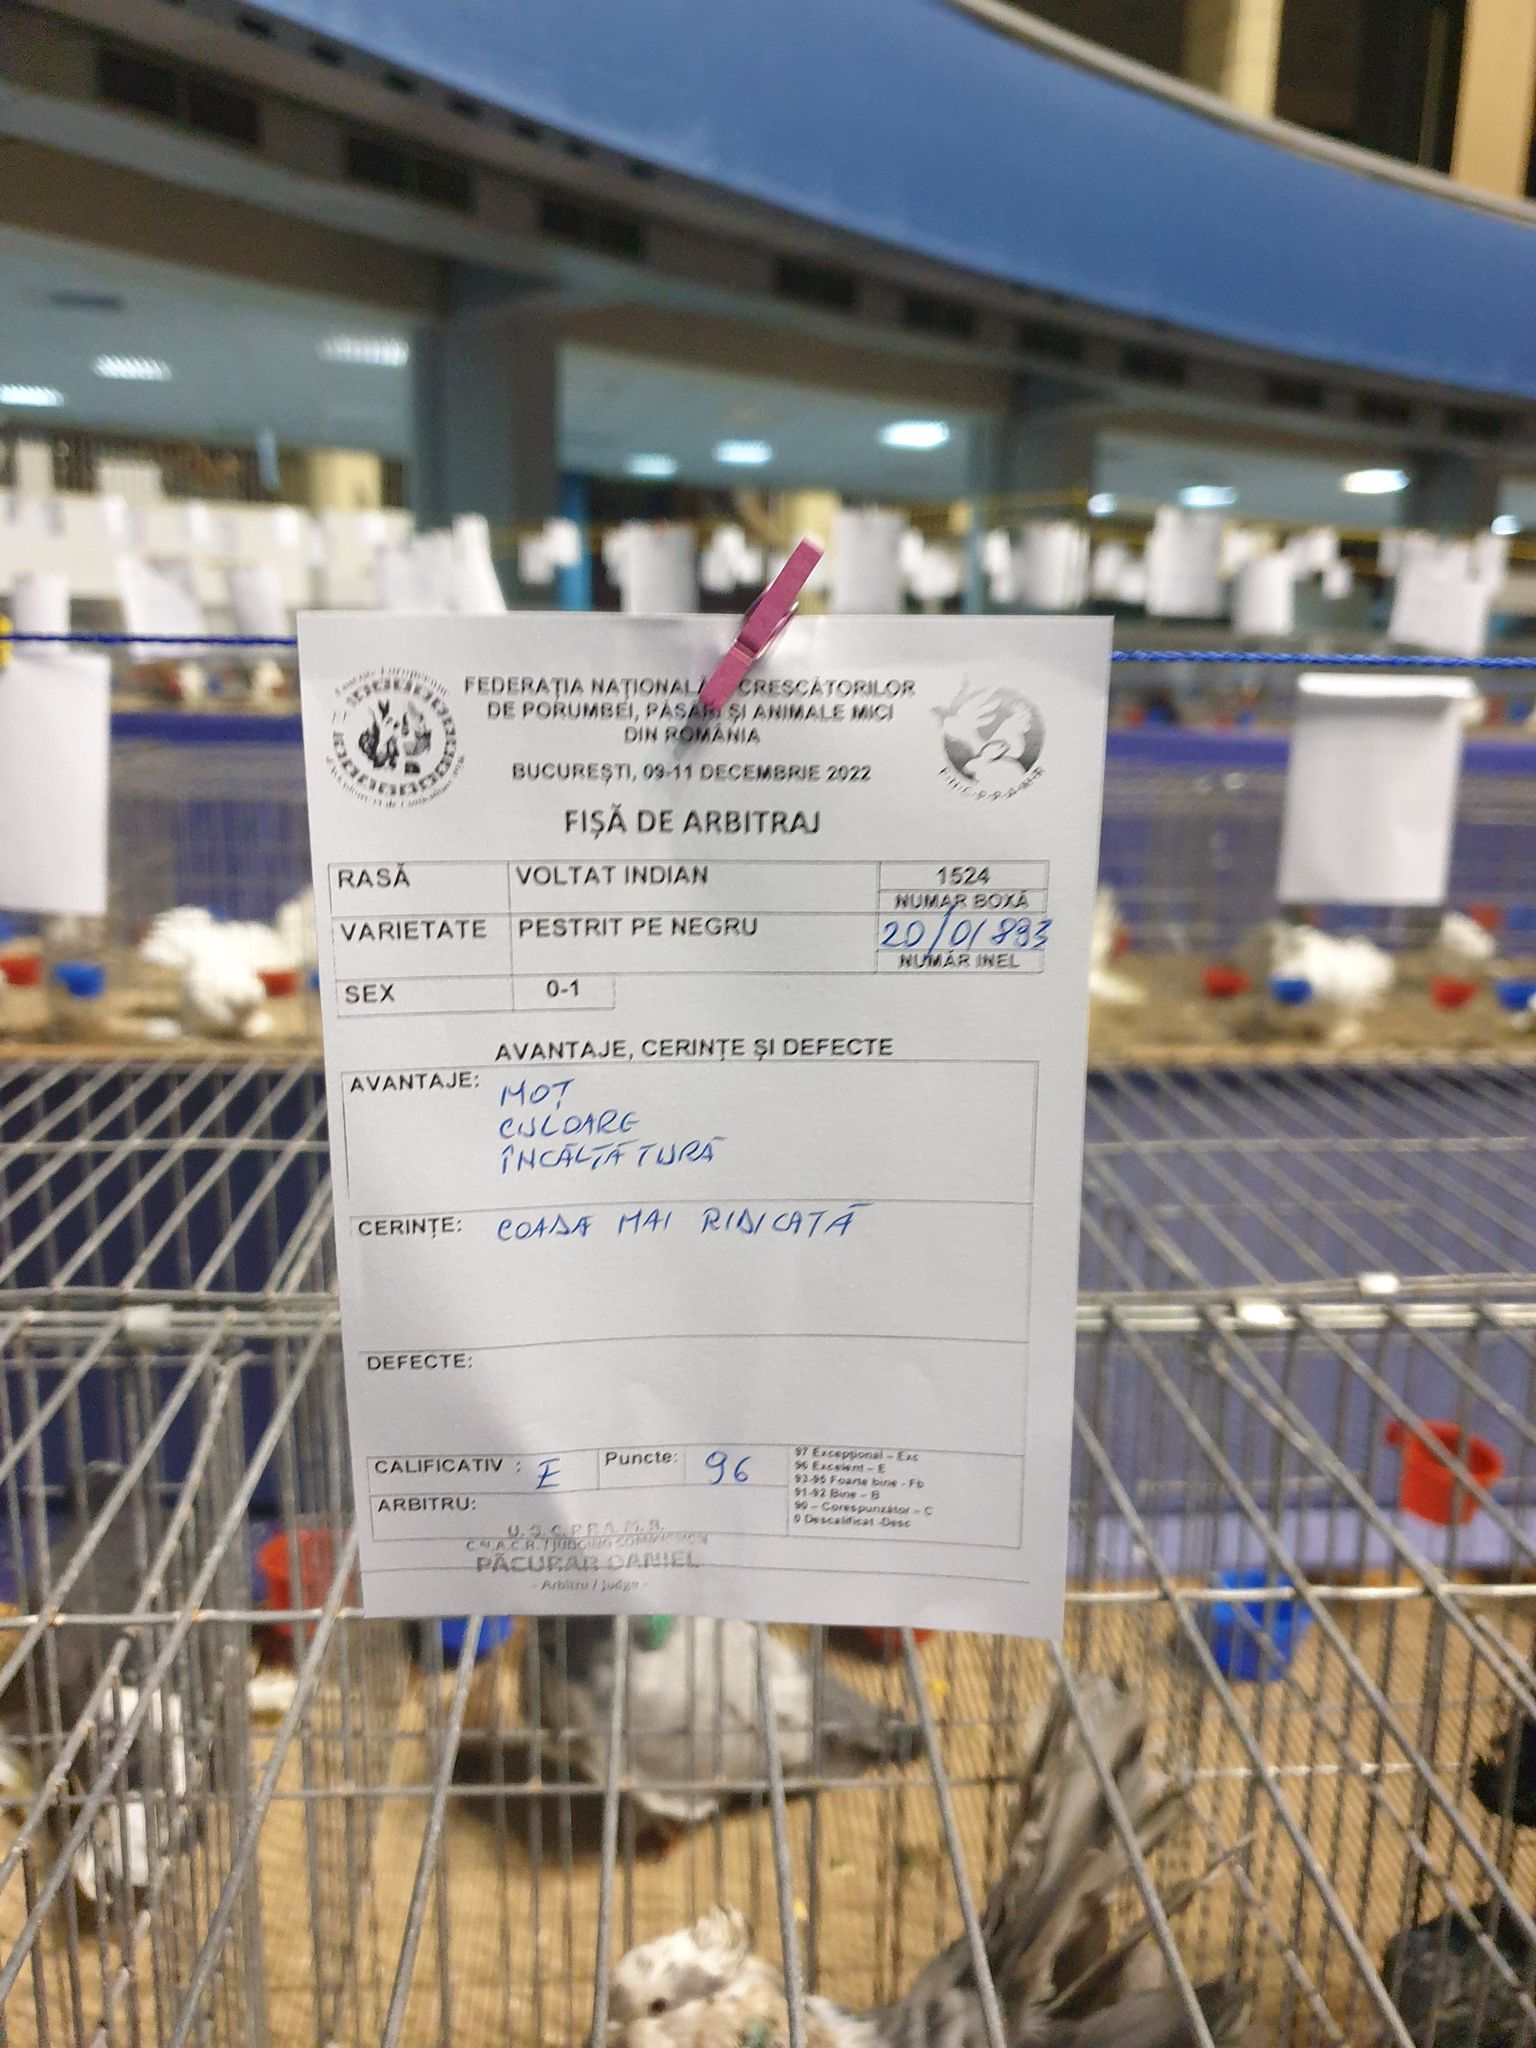 FEDERAȚIA NAȚIONALĂ CRESCĂTORILOR
DE PORUMBEI, PĂSĂRI ȘI ANIMALE MICI
DIN ROMÂNIA
BUCUREȘTI, 09-11 DECEMBRIE 2022
FIȘĂ DE ARBITRAJ
RASĂ VOLTAT INDIAN 1524
NUMAR BOXĂ
VARIETATE PESTRIT PE NEGRU 20/01893
NUMĂR INEL
SEX 0-1
AVANTAJE, CERINȚE ȘI DEFECTE
AVANTAJE: MOȚ
CULOARE
ÎNCĂLȚĂTURĂ
CERINȚE: COADA MAI RIDICATĂ
DEFECTE:
CALIFICATIV : E Puncte: 96
97 Excepțional – Exc
96 Excelent – E
93-95 Foarte bine - Fb
91-92 Bine – B
90 – Corespunzător – C
0 Descalificat -Desc
ARBITRU:
C.N.A.C.R. / JUDGING COMMISSION
PĂCURAR DANIEL
- Arbitru / Judge -